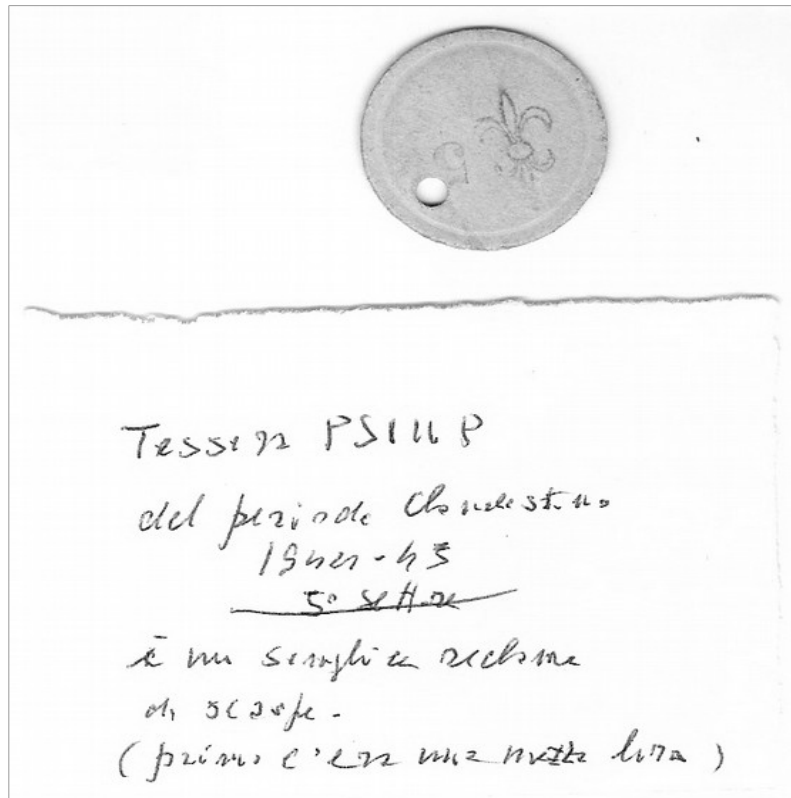 5
Tessera PSIUP
del periodo clandestino
1944-45
5° settore
è un semplice reclame
di scarpe.
(prima c'era una mezza lira)